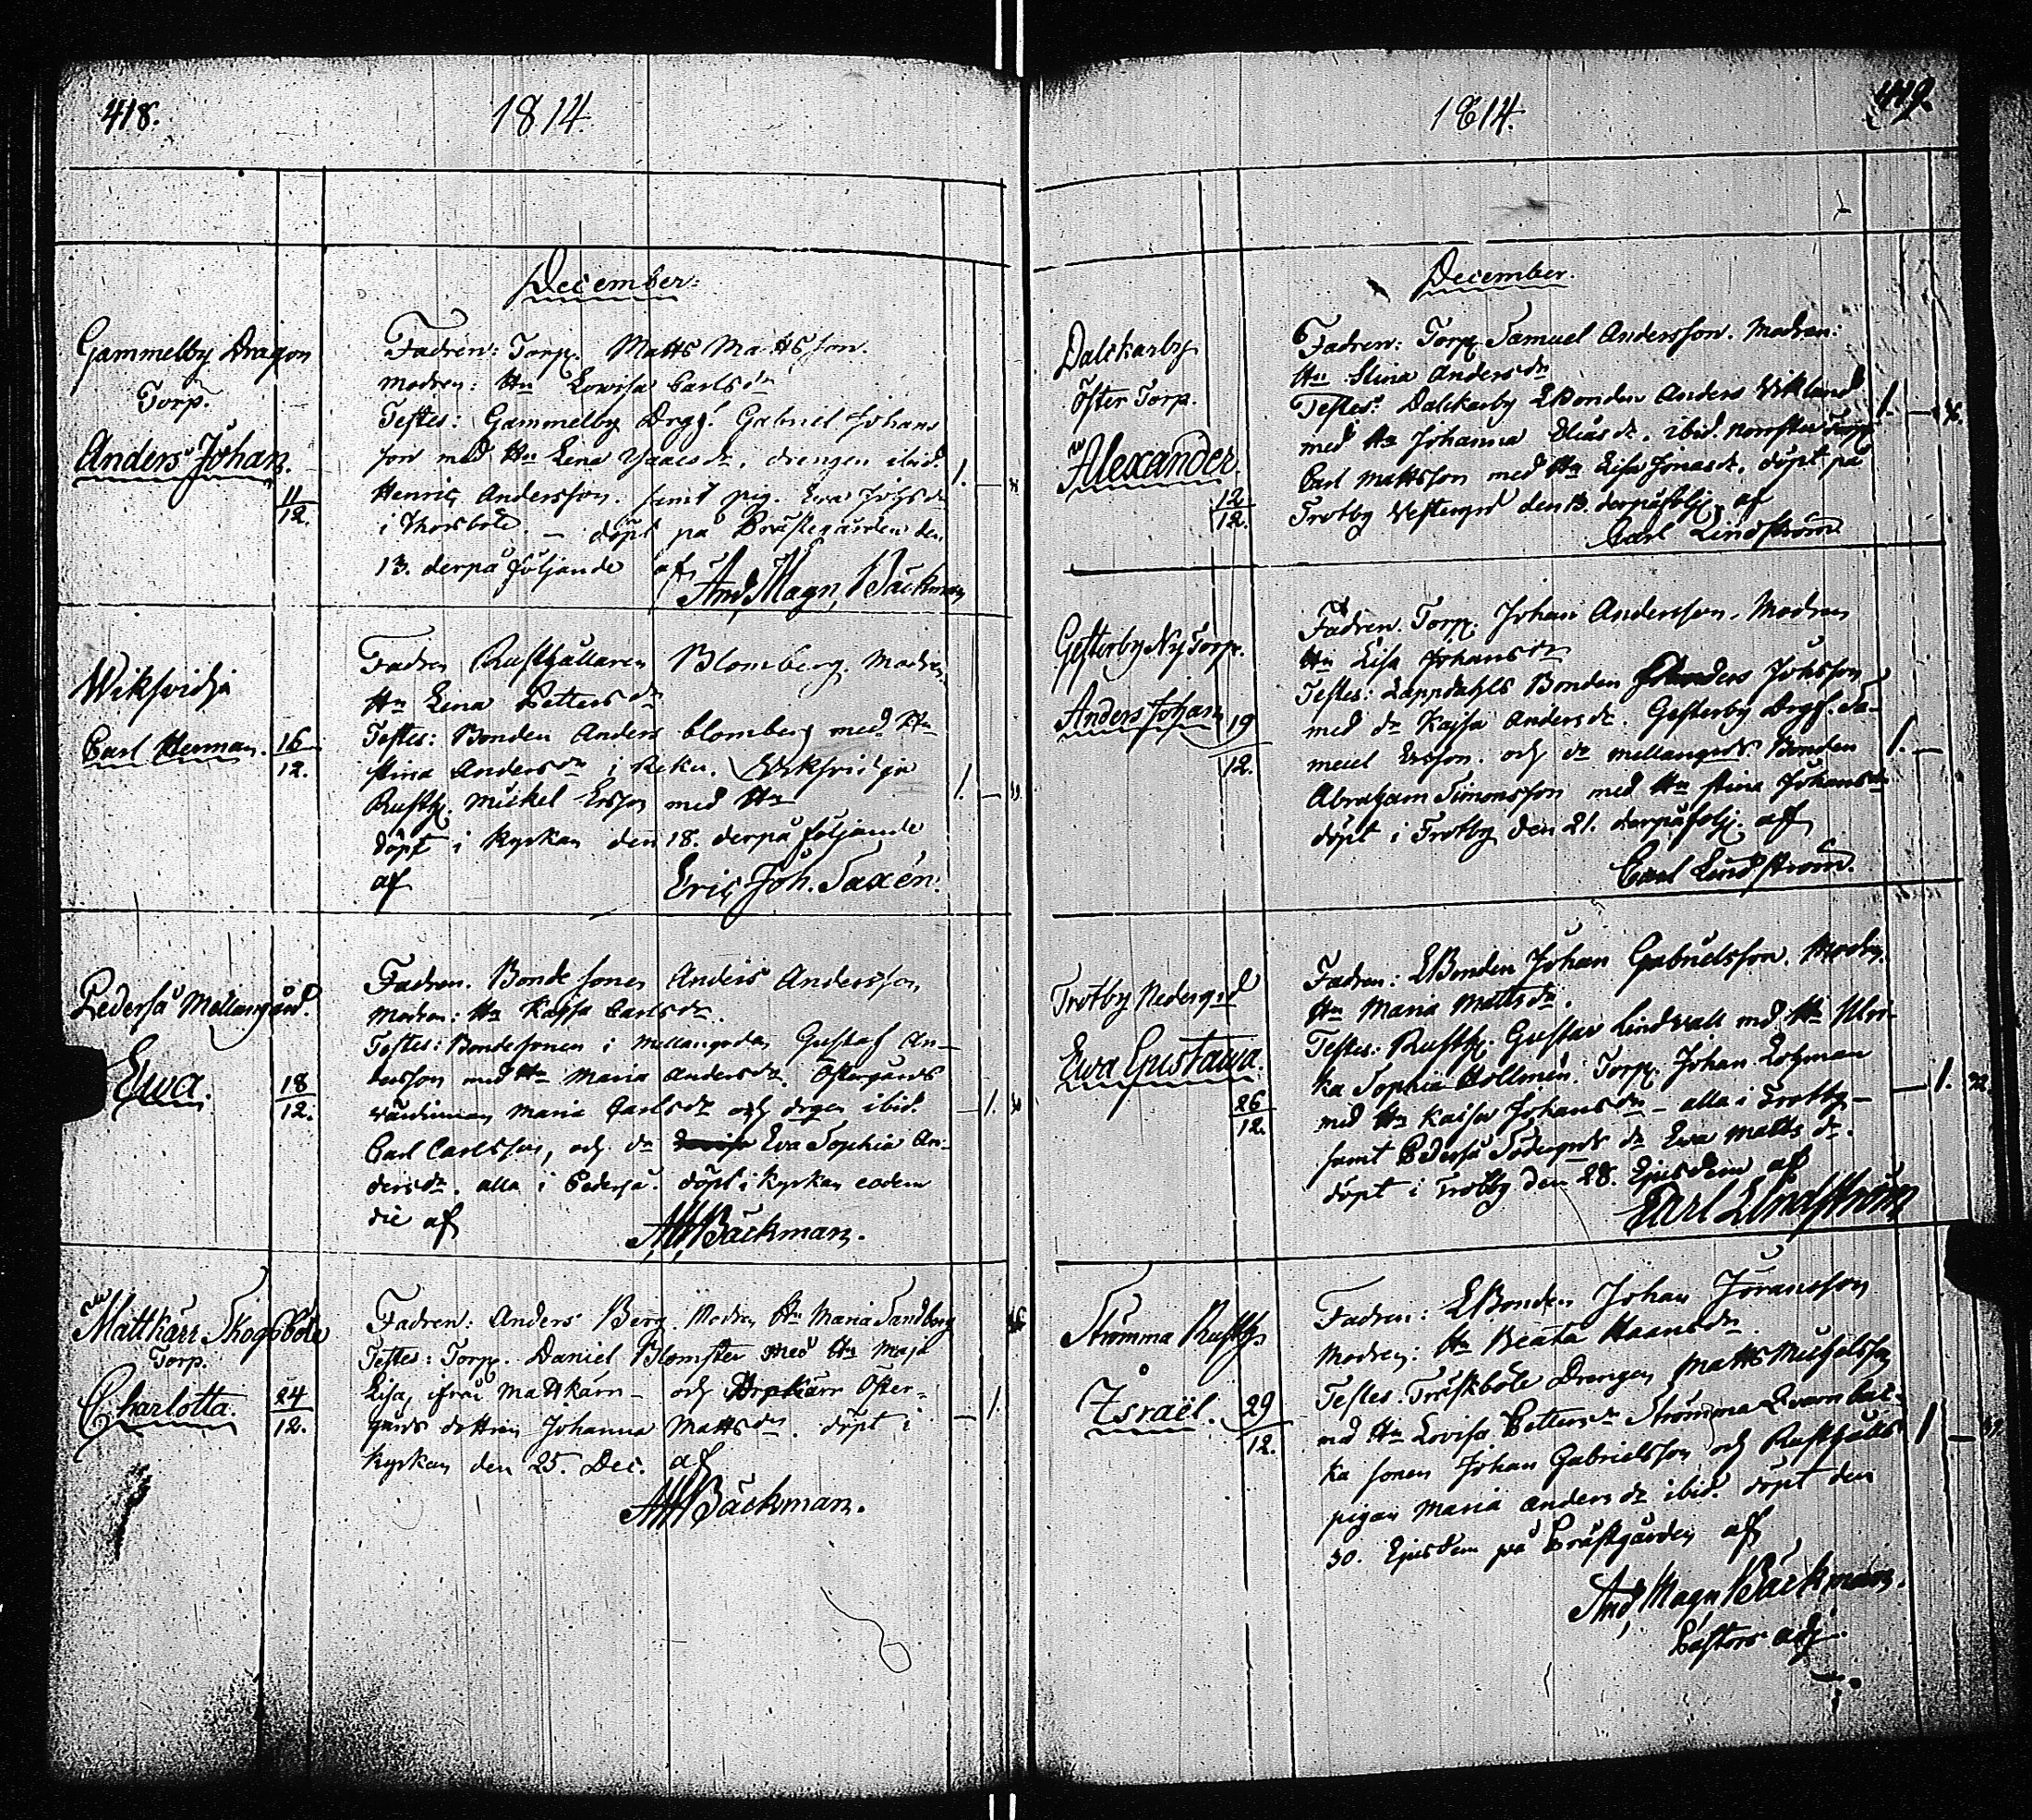 418.
1814.
December.
Gammelby Dragon
Torp.
Anders Johan.
11
12.
Fadren: Torp. Matts Mattsson.
modren: Hu Lowisa Carlsdr
Testes: Gammelby Drag. Gabriel Johans
son med Hu Lena Isaacsdr. drengen ibid.
Henric Andersson. samt pig. Ewa
i Thorsböle. – döpt på Prästegården den
13. derpå följande af
And. Magn. Bäckman
1. –
Wiksvidja
Carl Herman.
16
12.
Fadren Rusthållaren Blomberg. Modren
Hu Lena Pettersdr
Testes: Bonden Anders Blomberg med Hu
stina Andersdr i Reku. Wiksvidja
Rusth. Mickel Ersson med Hu
döpt i kyrkan den 18. derpå följande
af Eric Joh. Saxén.
1. –
Pederså Mellangård.
Ewa.
18
12.
Fadren. Bonde sonen Anders Andersson
modren: Hu Kajsa Carlsdr.
Testes: Bondesonen i mellangården Gustaf An-
dersson med Hu Maria Andersdr. Östergårds
värdinnan Maria Carlsdr och drgen ibid.
Carl Carlsson, och dr Eva Sophia An-
dersdr. alla i Pederså. döpt i kyrkan eodem
die af
AMBäckman.
– 1.
Mattkärr Skogsböle
Torp.
Charlotta.
24
12.
Fadren: Anders Berg. Modren Hu Maria Sandberg
Testes: Torp. Daniel Blomster med Hu Maja
Lisa, ifrån Mattkärr – och Öster-
gårds dottren Johanna Mattsdr. döpt i
kyrkan den 25. Dec. af
AMBäckman.
– 1.
419.
1814.
December.
Dalskarby
Öster Torp.
Alexander.
12
12.
Fadren: Torp. Samuel Andersson. Modren:
Hu Stina Andersdr
Testes: Dalskarby Bonden Anders Wiklund
med Hu Johanna Eliasdr. ibid.
Carl Mattsson med Hu Lisa Jonasdr. döpt på
Trotby Westergrd den 13. derpåfölj. af
Carl Lindström
1. –
Gesterby Ny Torp.
Anders Johan
19
12.
Fadren. Torp. Johan Andersson. Modren
Hu Lisa Johansdr
Testes: Lappdahls Bonden Johsson
med dr Kajsa Andersdr. Gesterby Drgs. Sa-
muel Ersson. och dr mellangrds Bonden
Abraham Simonsson med Hu stina Johansdr
döpt i Trotby den 21. derpåfölj. af
Carl Lindström.
1. –
Trotby Nedergrd
Ewa Gustawa.
26
12.
Fadren: Bonden Johan Gabrielsson. Modr.
Hu Maria Mattsdr.
Testes: Rusth. Gustav Lindwall med Hu Ulri-
ka Sophia Hollmén. Torp. Johan Lohman
med Hu Kaisa Johansdr – alla i Trotby –
samt Pederså Södergrds dr Ewa Mattsdr.
döpt i Trotby den 28. Ejusdem af
Carl Lindström
– 1.
Strömma Rusth.
Israël.
29
12.
Fadren: Bonden Johan Göransson
Modren: Hu Beata Hansdr.
Testes. Träskböle Drengen Matts Michelsson
med Hu Lovisa Pettersdr Strömma
ka sonen Johan Gabrielsson och Rusthålls
pigan Maria Andersdr ibid. döpt den
30. Ejusdem på Prästgården af
And. Magn. Bäckman.
Pastors adj.
1 –